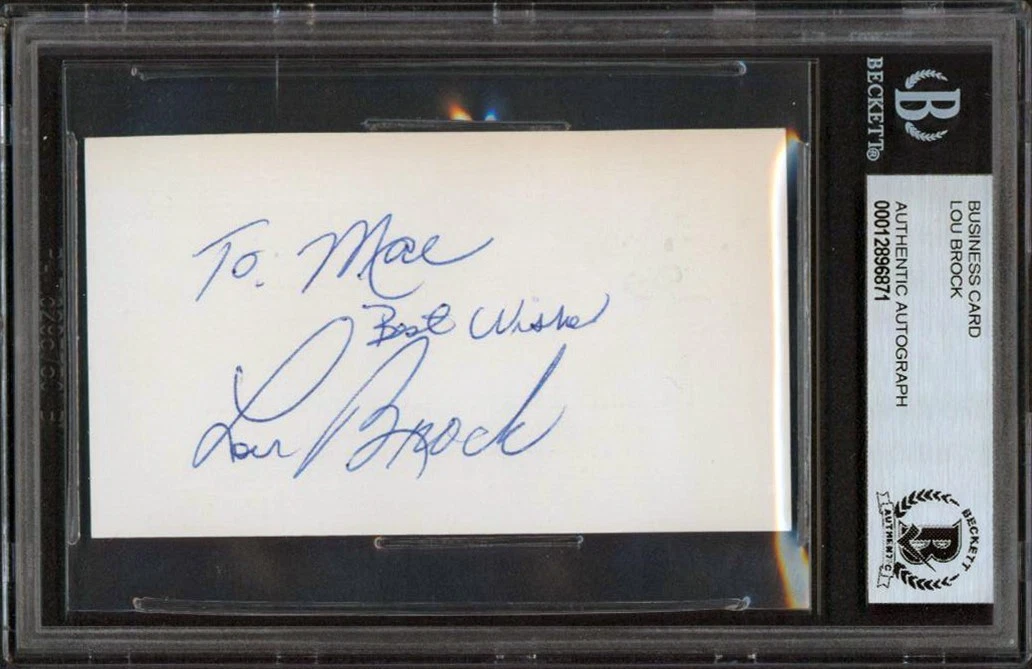 To. Mae
Best Wishes
Lou Brock
BECKETT®
B
BUSINESS CARD
LOU BROCK
AUTHENTIC AUTOGRAPH
00012896871
BECKETT
AUTHENTIC